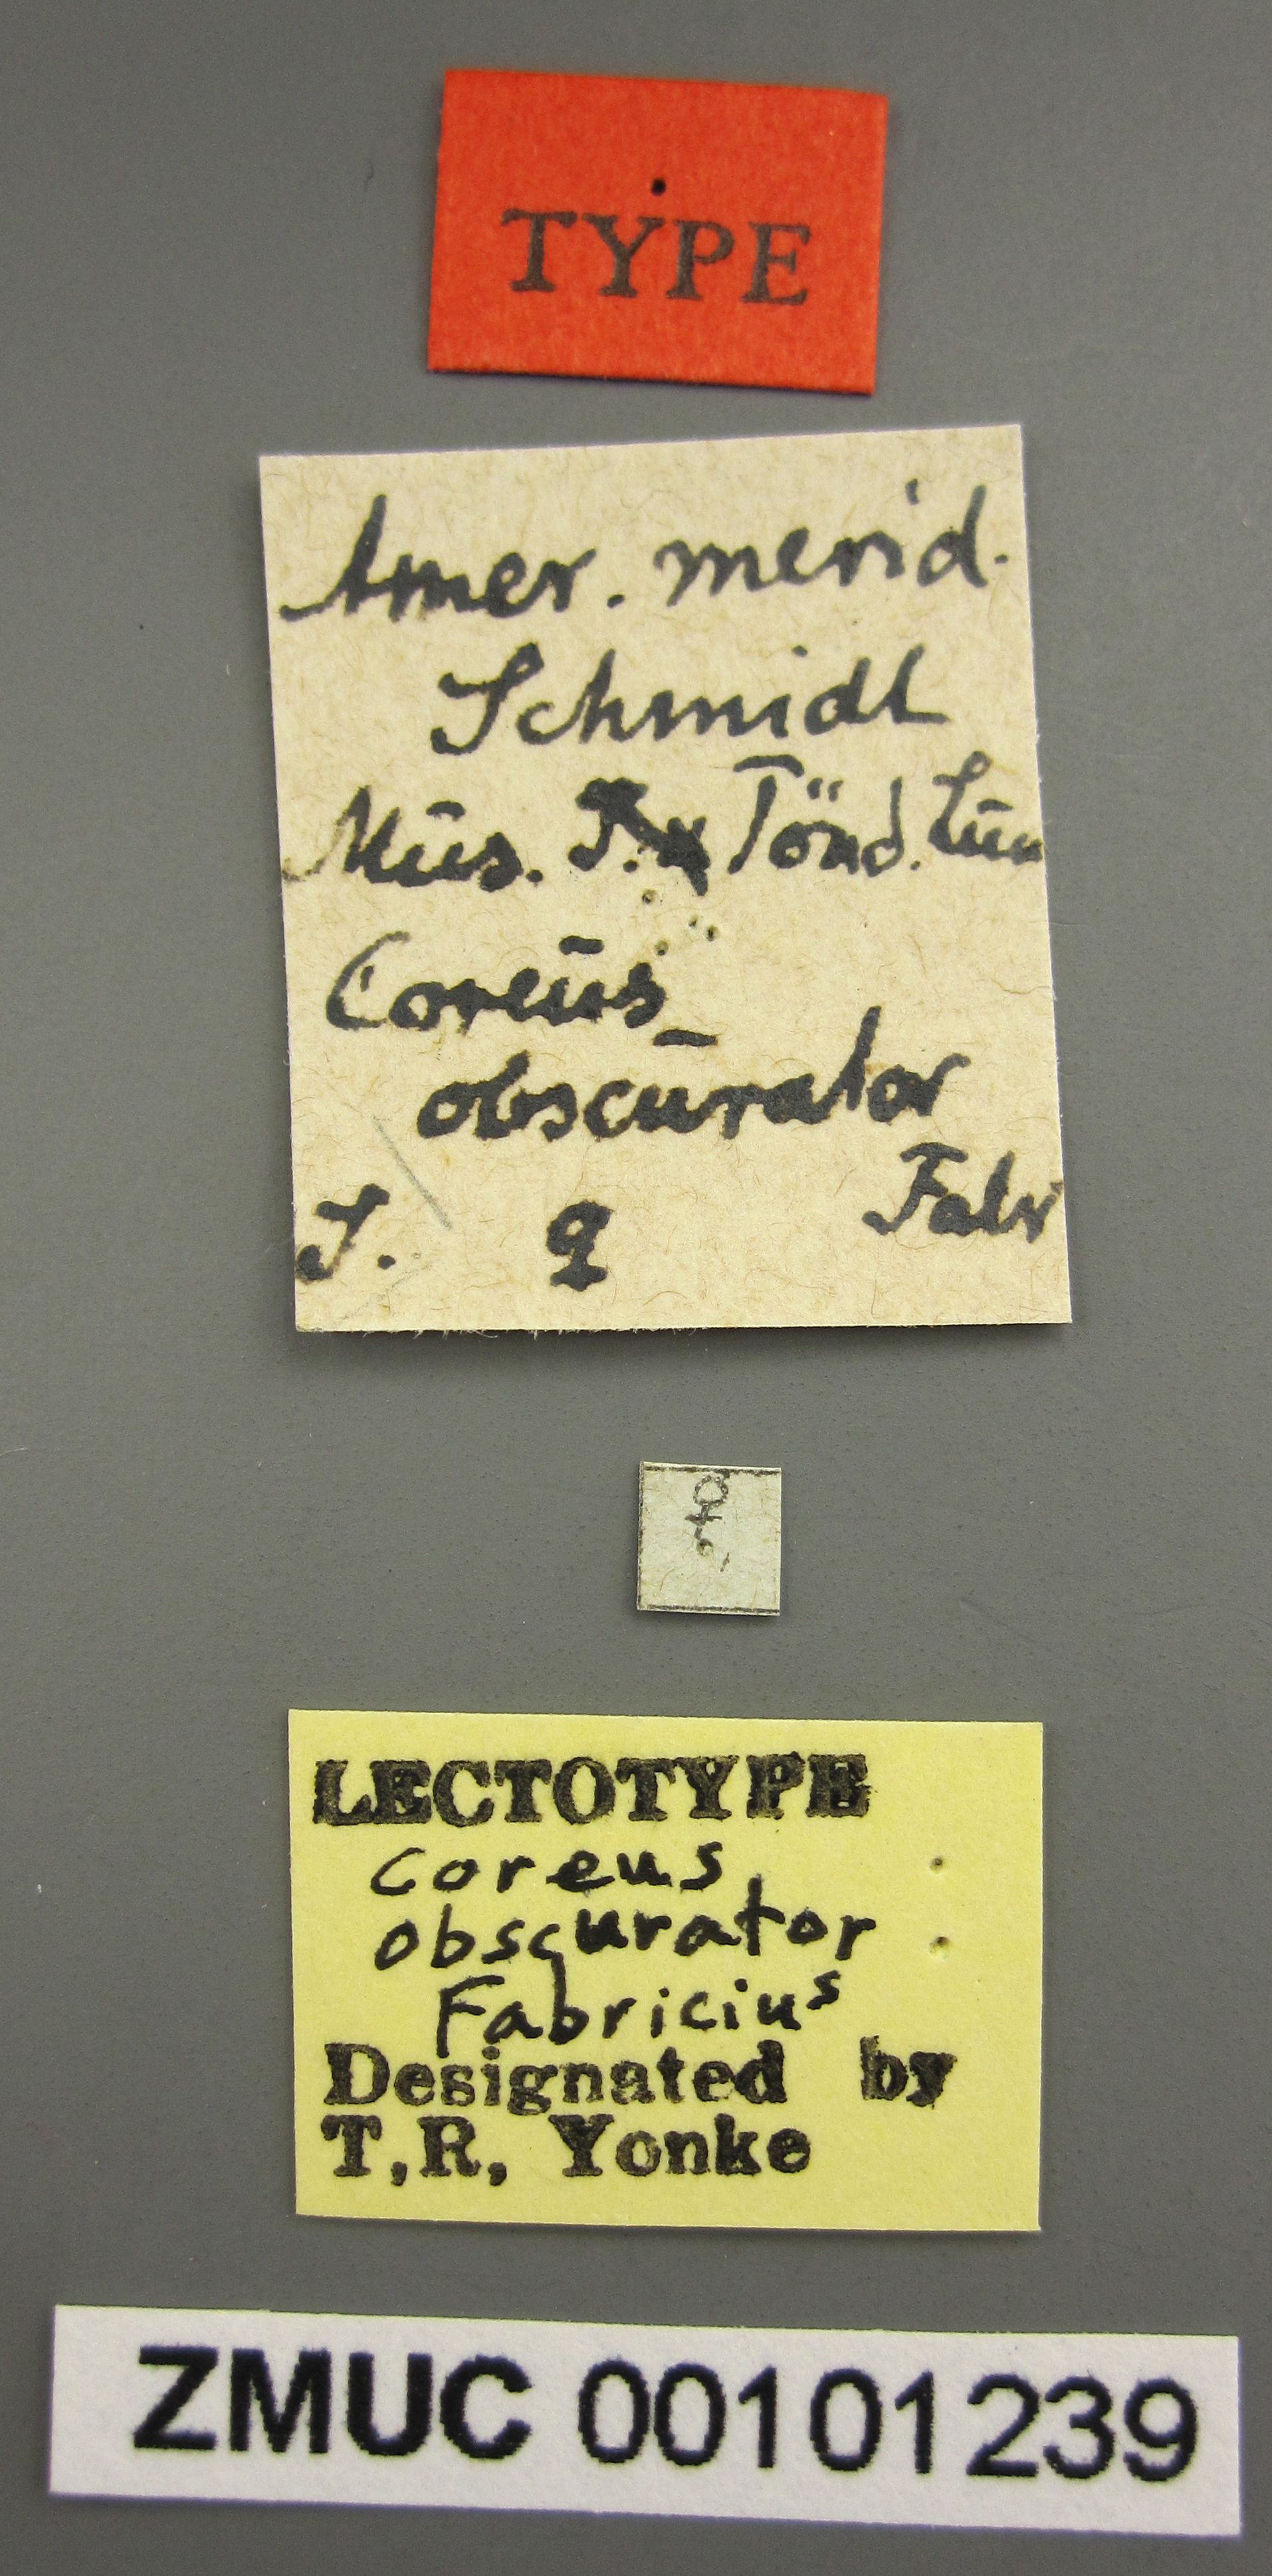 TYPE
Amer. merid.
Schmidt
Mūs. S. & Tönd. Lūn
Coreūs
obscūrator
Fabr
S. ♀
♀
LECTOTYPE
Coreus
obscurator
Fabricius
Designated by
T,R, Yonke
ZMUC 00101239